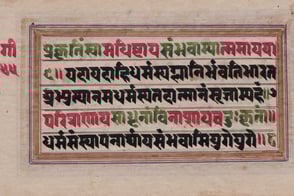 गी
५५
प्रकृतिंस्वामधिष्ठायसंभवाम्यात्ममायया
६॥यदायदाहिधर्मस्यग्लानिर्भवतिभारत
अभ्युत्थानमधर्मस्यतदात्मानंसृजाम्यहं॥
परित्राणायसाधूनांविनाशायचदुष्कृतां
धर्मसंस्थापनार्थायसंभवामियुगेयुगे॥८